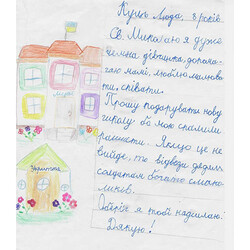 Куць Люда, 8 років.
Св. Миколаю я дуже
чемна дівчинка, допома-
гаю мамі, люблю малюва-
ти, співати.
Прошу подарувати нову
школу бо мою спалили
рашисти. Якщо це не
вийде, то відвези дядям
солдатам багато смако-
ликів.
я тобі надішлю!
Дякую!